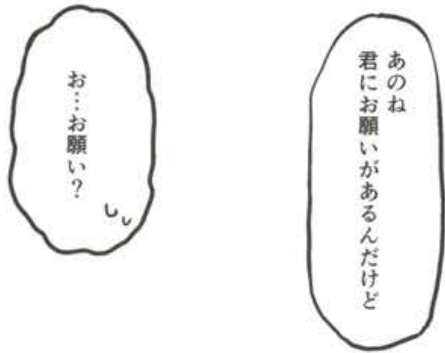 あのね
君にお願いがあるんだけど
お…お願い？